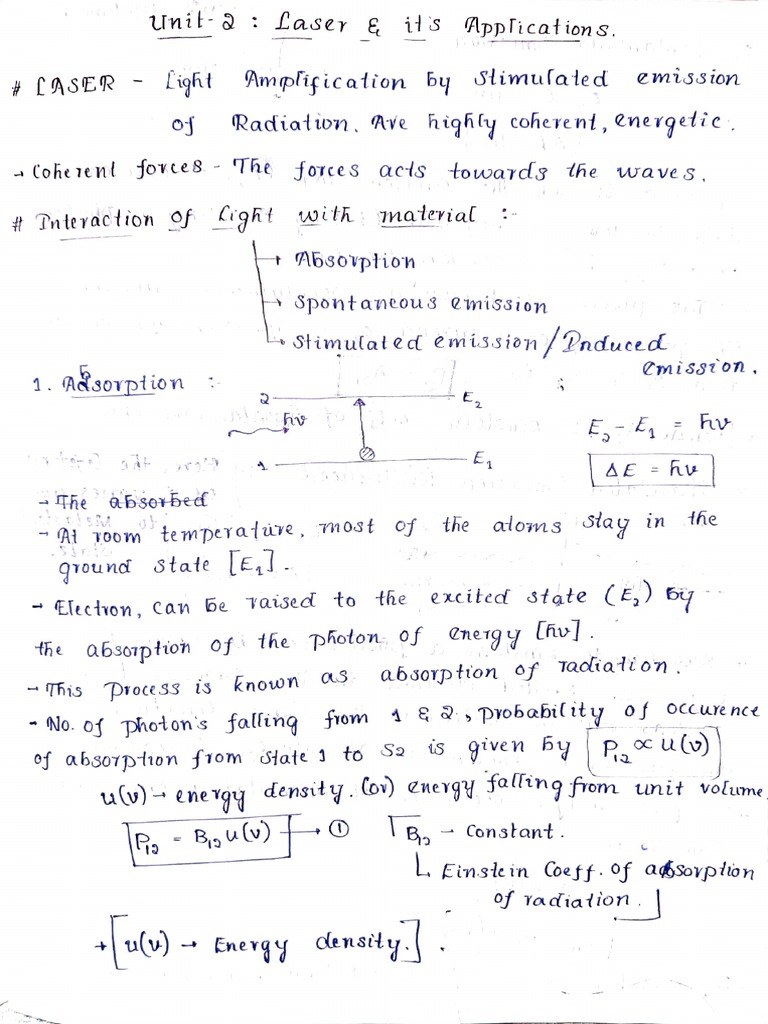 Unit-2 : Laser & it's Applications.
# LASER - Light Amplification by stimulated emission
of Radiation. Are highly coherent, energetic.
→ Coherent forces - The forces acts towards the waves.
# Interaction of Light with material :-
→ Absorption
→ Spontaneous emission
→ Stimulated emission / Induced
emission.
1. Absorption :-
2 E₂
hν
1 E₁
E₂ - E₁ = hν
ΔE = hν
→ The absorbed
→ At room temperature, most of the atoms stay in the
ground state [E₁].
→ Electron, can be raised to the excited state (E₂) by
the absorption of the photon of energy [hν].
→ This process is known as absorption of radiation.
→ No. of photon's falling from 1 & 2, probability of occurence
of absorption from state 1 to S2 is given by P₁₂ ∝ u(ν)
u(ν) → energy density. (or) energy falling from unit volume.
P₁₂ = B₁₂ u(ν) → ① B₁₂ - Constant.
Einstein Coeff. of absorption
of radiation.
→ [u(ν) → Energy density.].